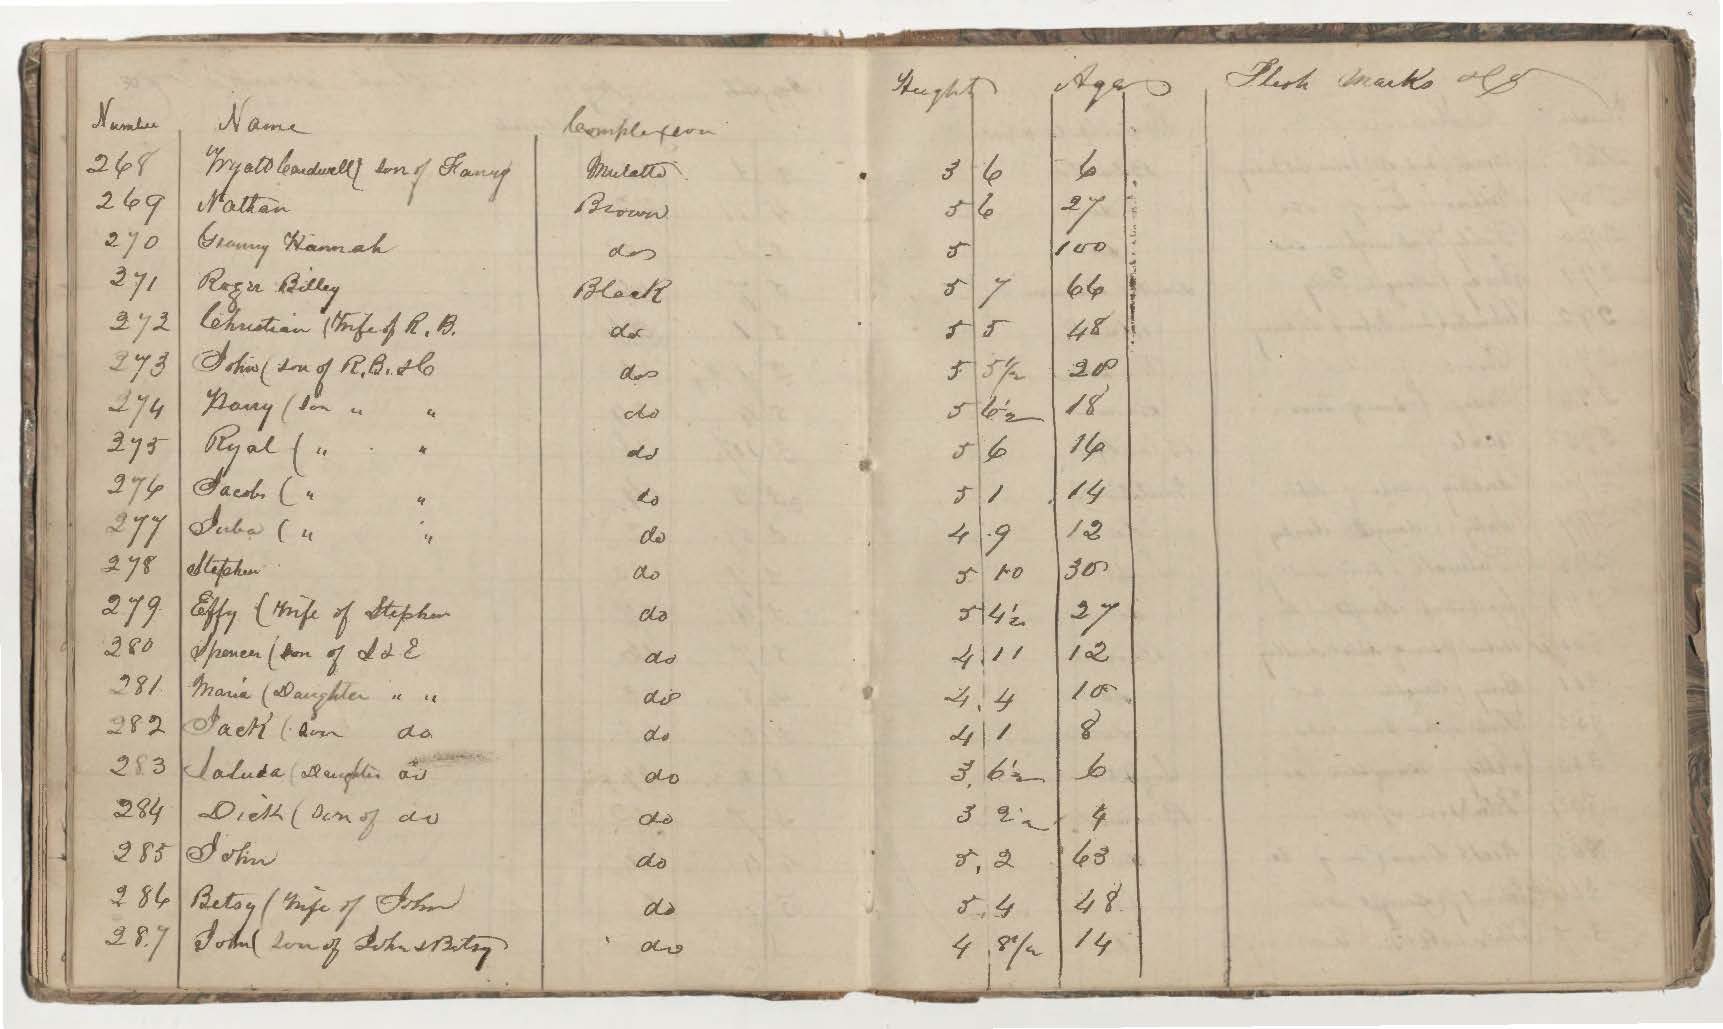 Number Name Complexion Height Age Flesh Marks &c
268 Wyatt Cardwell ( Son of Fanny Mulatto 3 6 6
269 Nathan Brown 5 6 27
270 Granny Hannah do 5 100
271 Roger Billey Black 5 7 66
272 Christian (Wife of R. B. do 5 5 48
273 John ( son of R. B. & C do 5 5 1/2 20
274 Harry ( Son " " do 5 6 1/2 18
275 Ryal ( " " do 5 6 16
276 Jacob ( " " do 5 1 14
277 Juba ( " " do 4 9 12
278 Stephen do 5 10 30
279 Effy ( Wife of Stephen do 5 4 1/2 27
280 Spencer ( Son of S & E do 4 11 12
281 Maria ( Daughter " " do 4 4 10
282 Jack ( Son do do 4 1 8
283 Saluda ( Daughter do do 3 6 1/2 6
284 Dick ( Son of do do 3 2 1/2 4
285 John do 5 2 63
286 Betsy ( Wife of John do 5 4 48
287 John ( Son of John & Betsy do 4 8 1/2 14